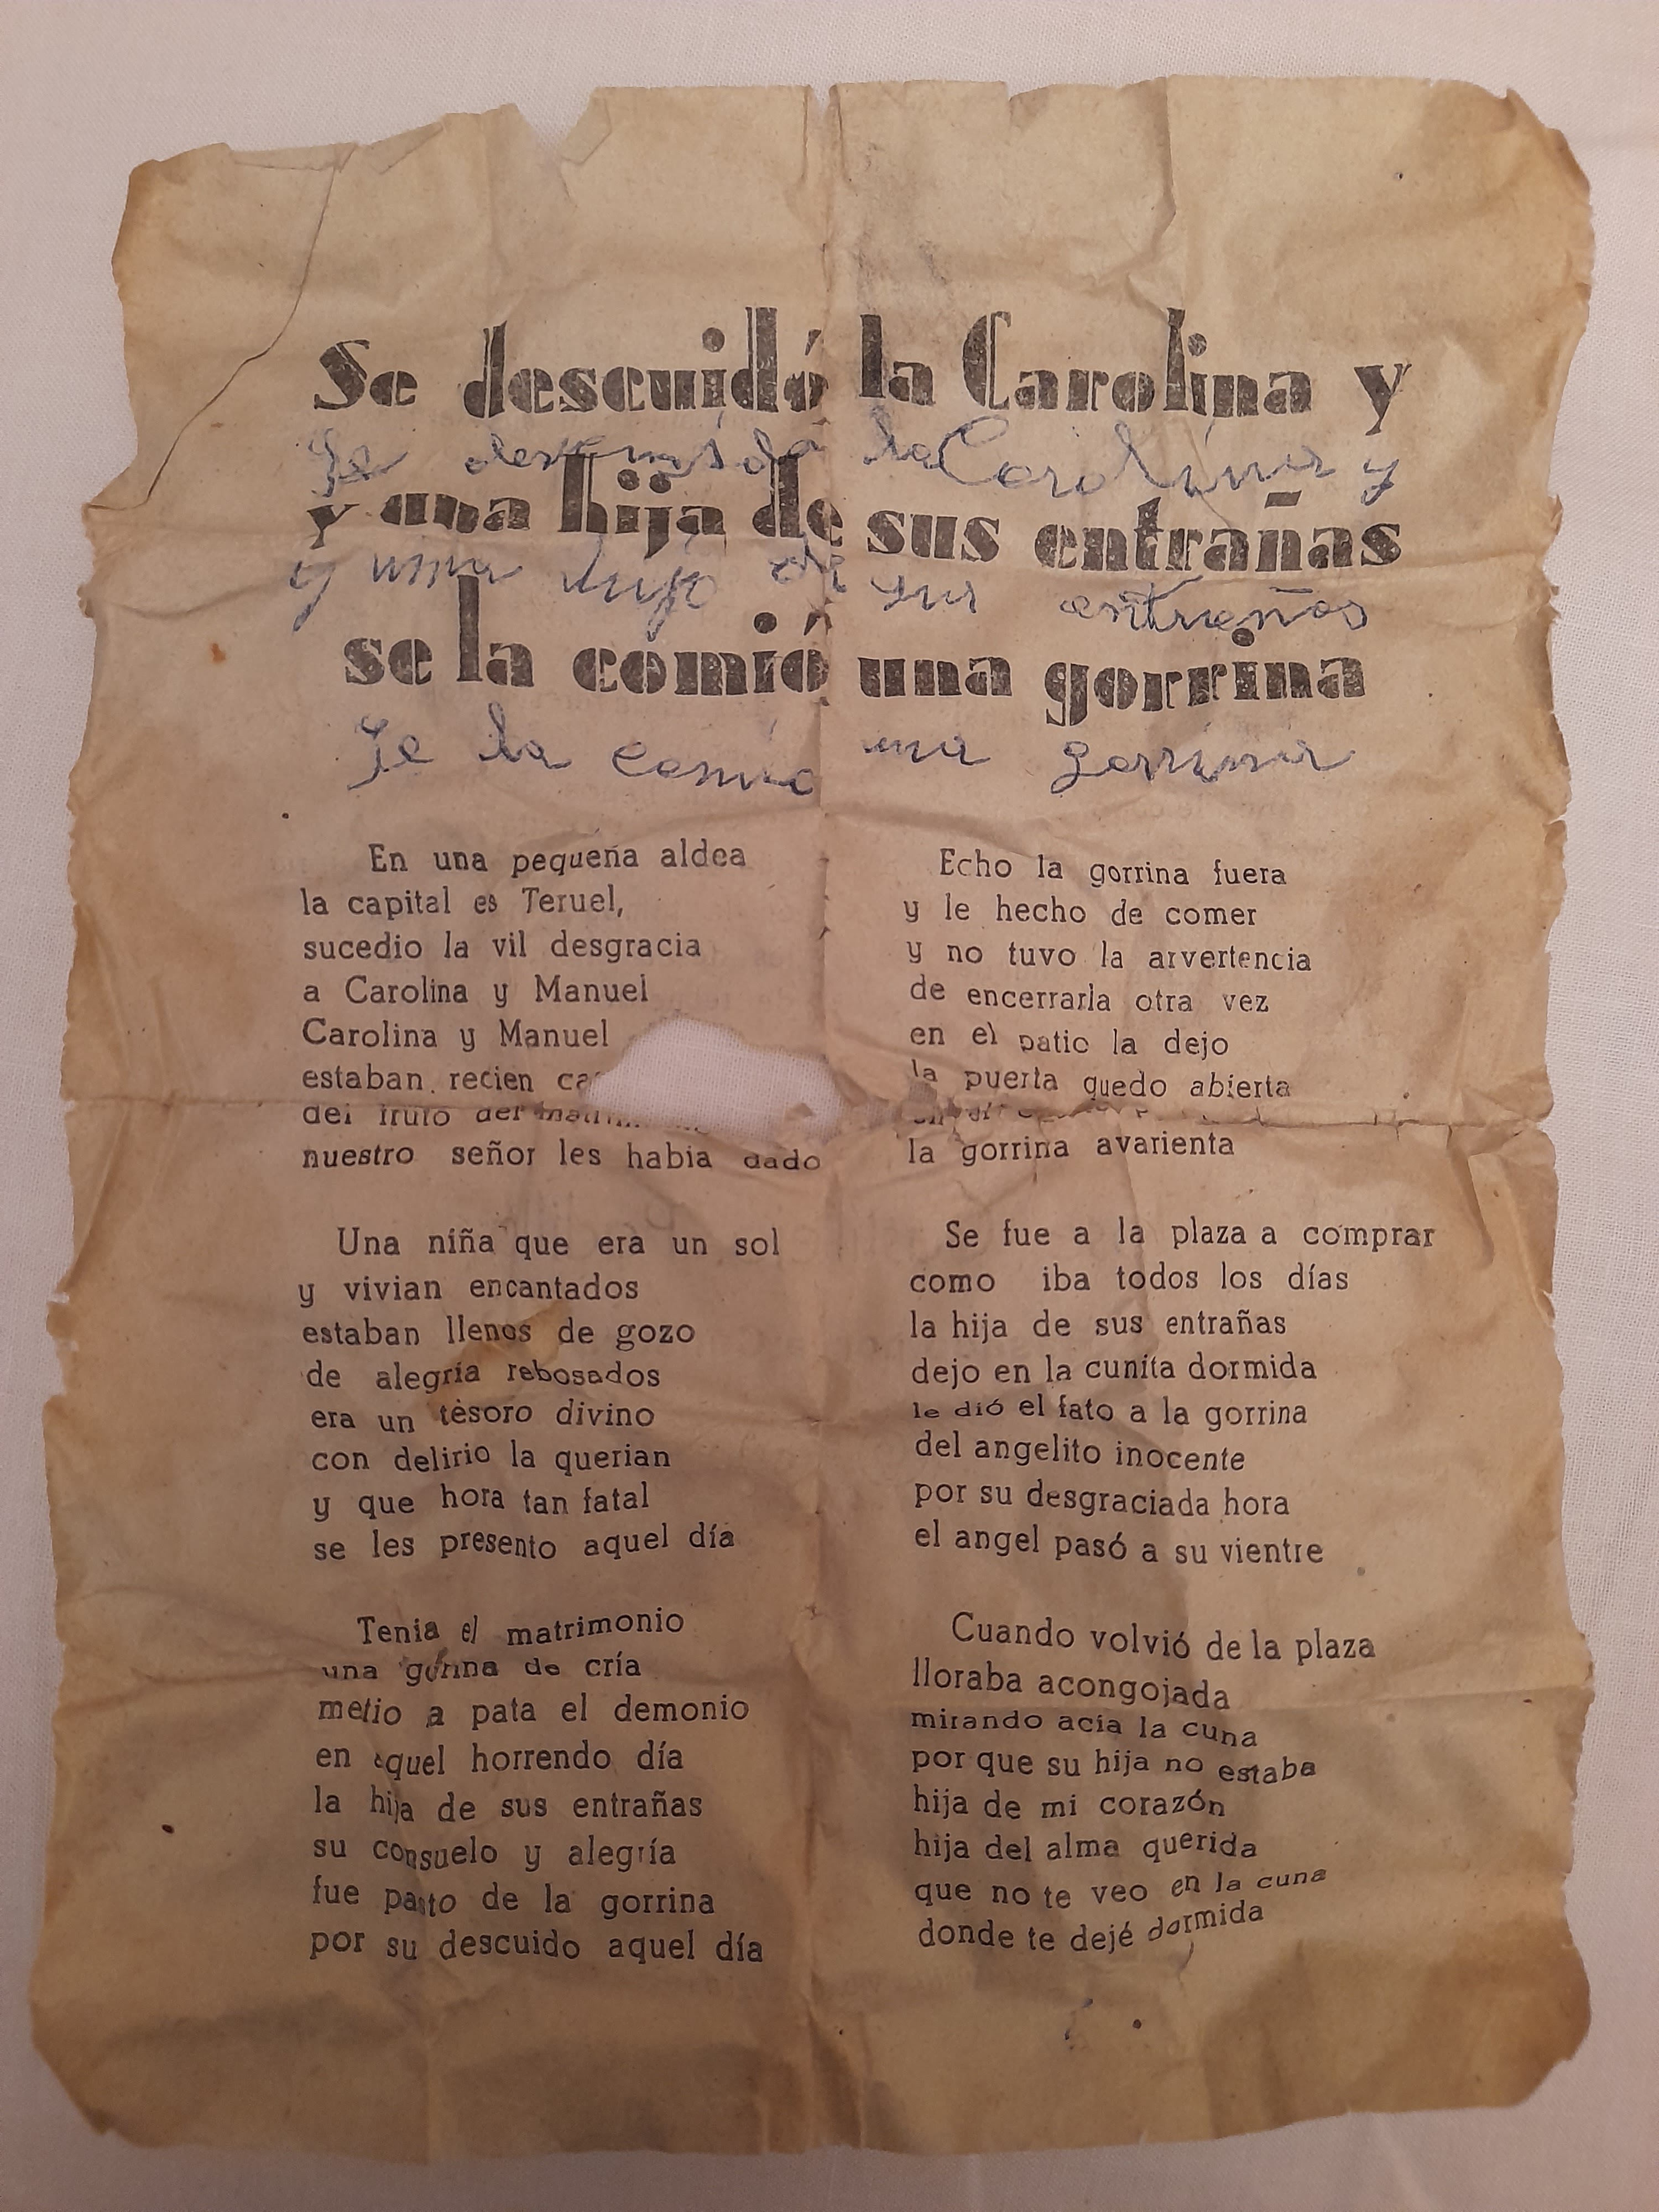 Se descuidó la Carolina y
Se descuidó la Carolina y
y una hija de sus entrañas
y una hija de sus entrañas
se la comió una gorrina
Se la comió una gorrina
En una pequeña aldea
la capital es Teruel,
sucedio la vil desgracia
a Carolina y Manuel
Carolina y Manuel
estaban recien
del fruto del
nuestro señor les habia dado
Una niña que era un sol
y vivian encantados
estaban llenos de gozo
de alegría rebosados
era un tesoro divino
con delirio la querian
y que hora tan fatal
se les presento aquel día
Tenia el matrimonio
una gorrina de cría
metio a pata el demonio
en aquel horrendo día
la hija de sus entrañas
su consuelo y alegría
fue pasto de la gorrina
por su descuido aquel día
Echo la gorrina fuera
y le hecho de comer
y no tuvo la arvertencia
de encerrarla otra vez
en el patio la dejo
la puerta quedo abierta
la gorrina avarienta
Se fue a la plaza a comprar
como iba todos los días
la hija de sus entrañas
dejo en la cunita dormida
le dió el fato a la gorrina
del angelito inocente
por su desgraciada hora
el angel pasó a su vientre
Cuando volvió de la plaza
lloraba acongojada
mirando acia la cuna
por que su hija no estaba
hija de mi corazón
hija del alma querida
que no te veo en la cuna
donde te dejé dormida